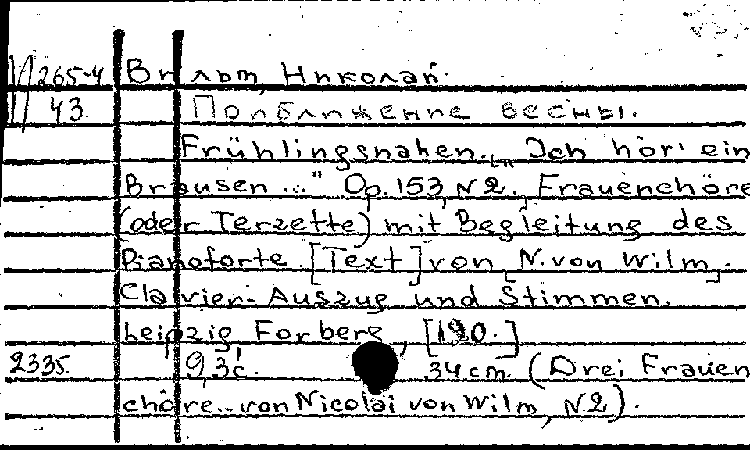 265-4 Вильм, Николай.
43 Приближение весны.
Frühlingsnahen. „Ich hör' ein
Brausen..." Op. 153, N 2. Frauenchöre
(oder Terzette) mit Begleitung des
Pianoforte. [Text] von N. von Wilm.
Clavier-Auszug und Stimmen.
Leipzig, Forberg, [190.]
2335. 9, 3 с. 34 cm. (Drei Frauen
chöre.. von Nicolai von Wilm, N 2).